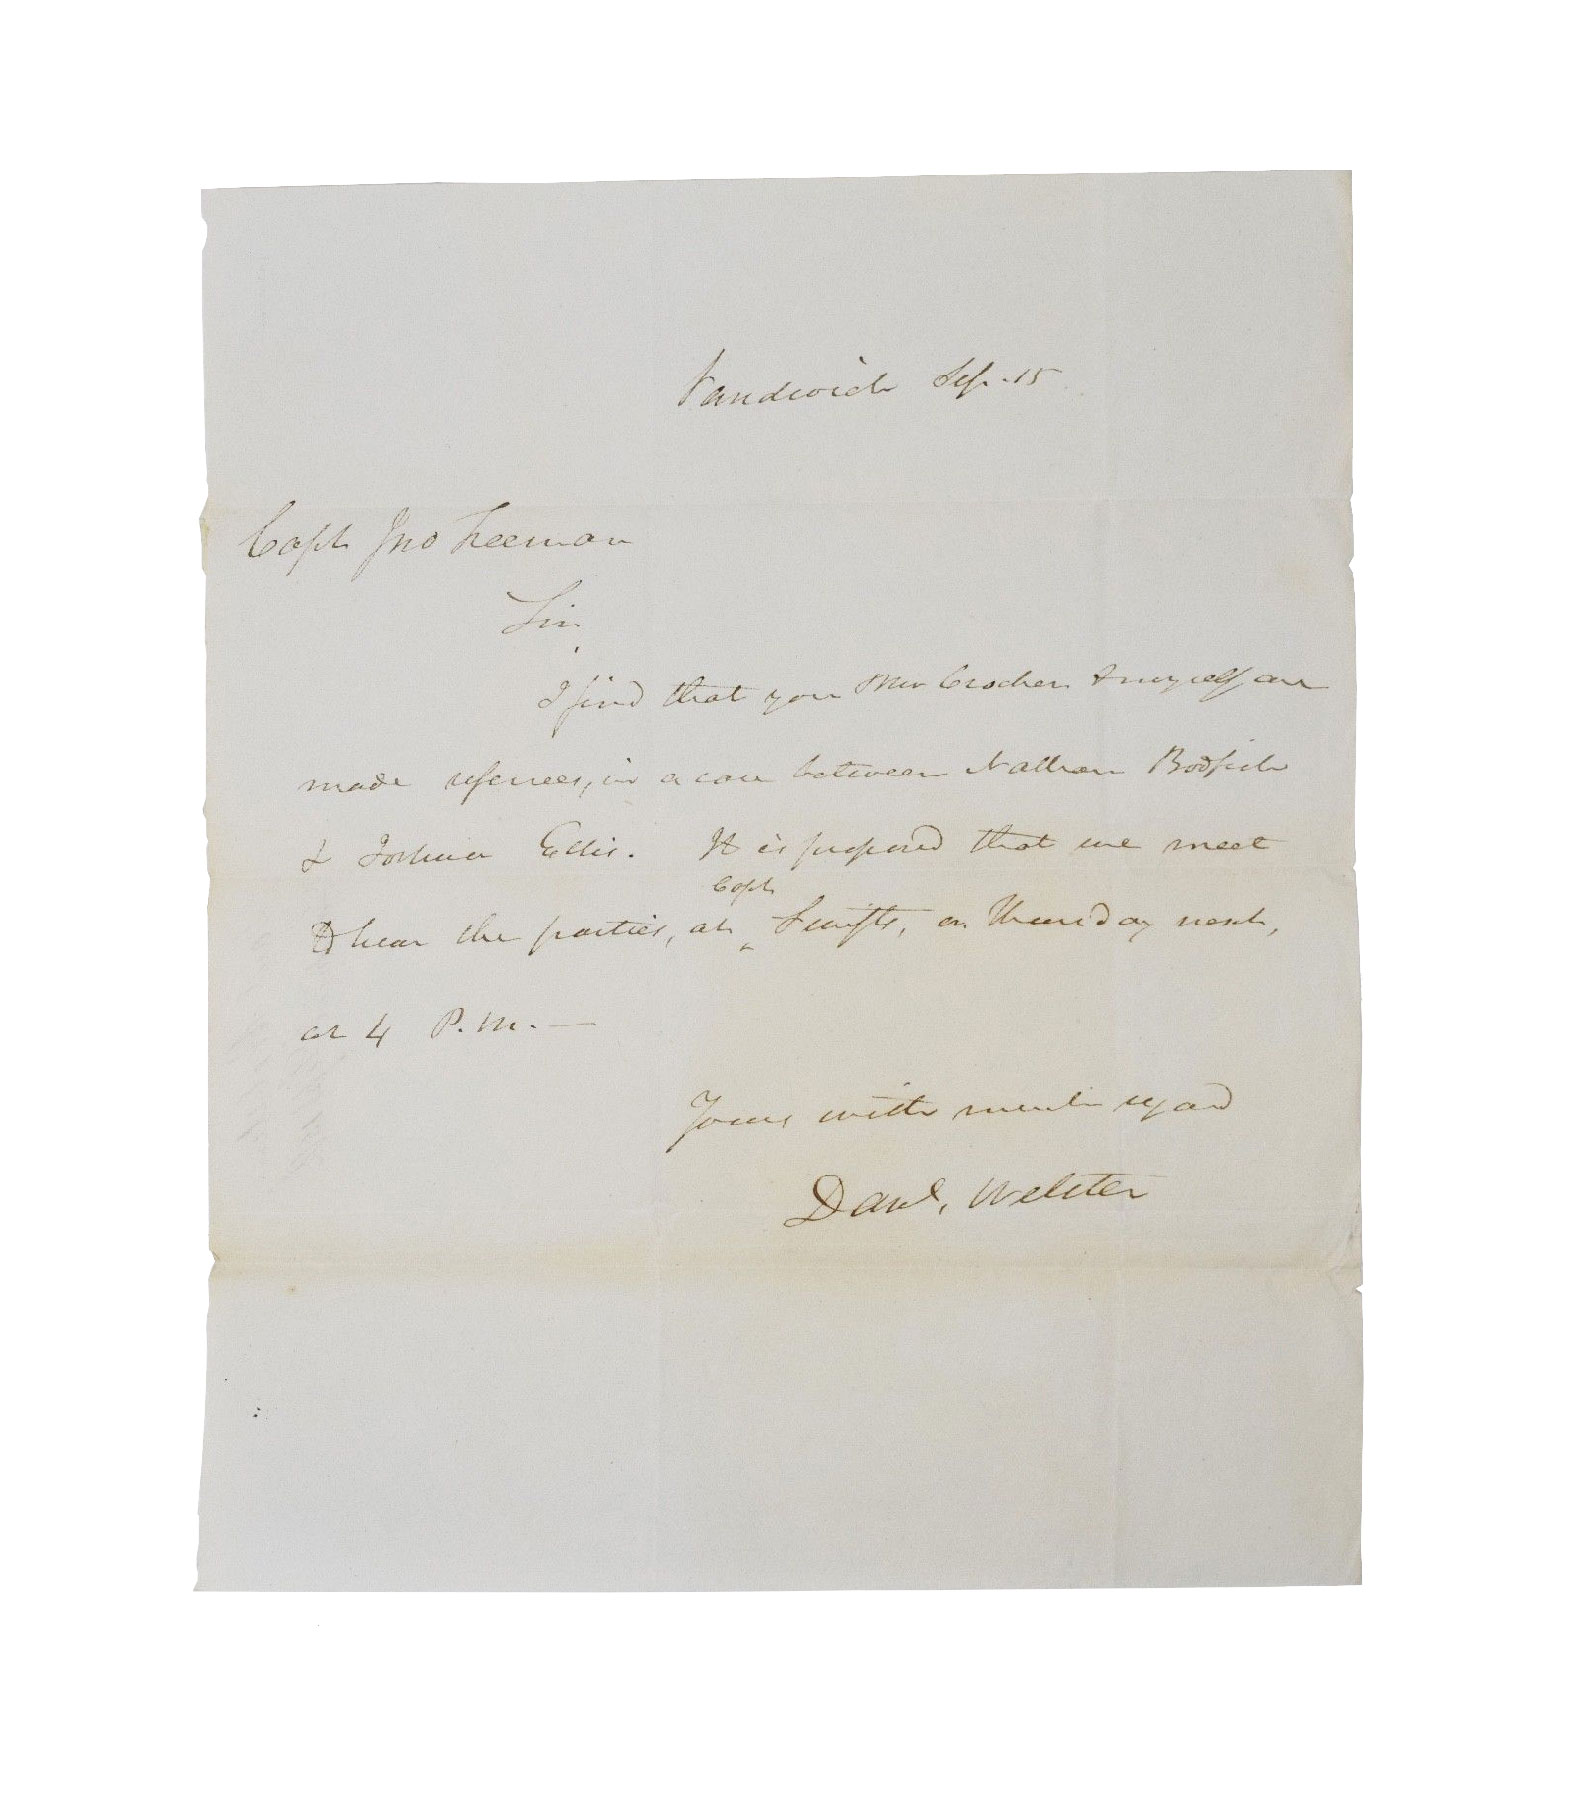 Sandwich Sep. 15
Capt Jno Freeman
Sir
I find that you Mr Crocker & myself are
made referees, in a case between Nathan Bodfish
& Joshua Ellis. It is proposed that we meet
Capt
& hear the parties, at ‸ Swifts, on Thursday next,
at 4 P.M. —
Yours with much regard
Danl, Webster